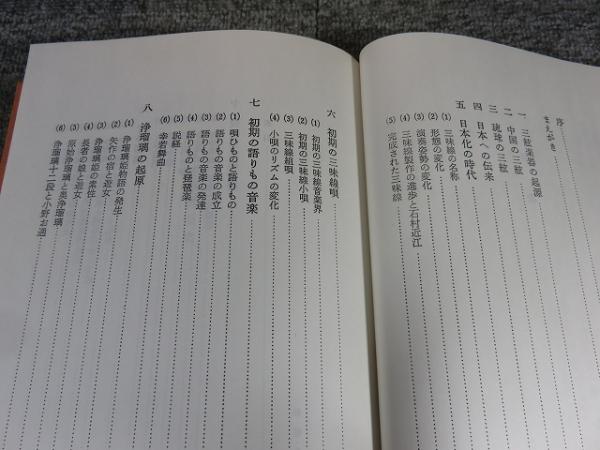 序
まえがき
一 三絃楽器の起源
二 中国の三絃
三 琉球の三絃
四 日本への伝来
五 日本化の時代
(1) 三味線の名称
(2) 形態の変化
(3) 演奏姿勢の変化
(4) 三味線製作の進歩と石村近江
(5) 完成された三味線
六 初期の三味線唄
(1) 初期の三味線音楽界
(2) 初期の三味線小唄
(3) 三味線組唄
(4) 小唄のリズムの変化
七 初期の語りもの音楽
(1) 唄ひものと語りもの
(2) 語りもの音楽の成立
(3) 語りもの音楽の発達
(4) 語りものと琵琶楽
(5) 説経
(6) 幸若舞曲
八 浄瑠璃の起原
(1) 浄瑠璃姫物語の発生
(2) 矢作の宿と遊女
(3) 浄瑠璃姫の素性
(4) 長者の娘と遊女
(5) 原始浄瑠璃と奥浄瑠璃
(6) 浄瑠璃十二段と小野お通